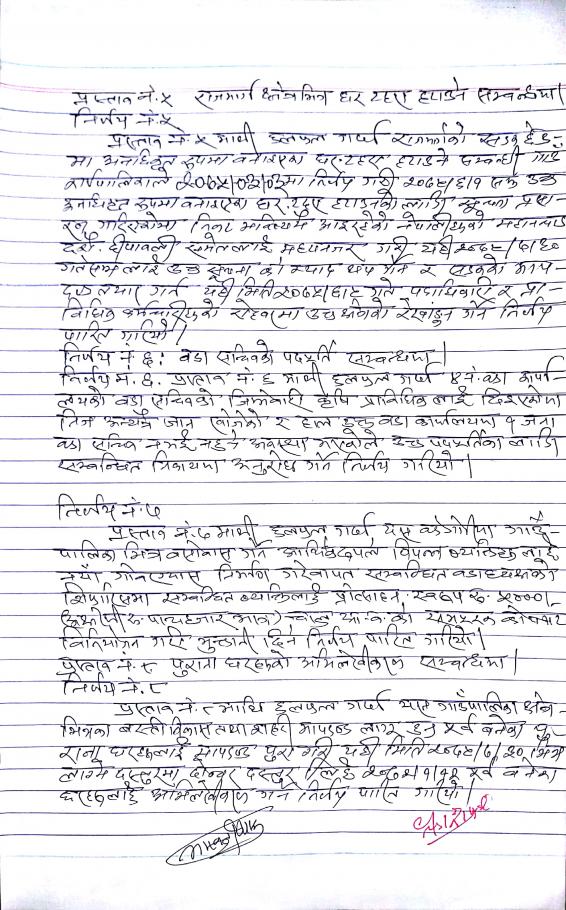 प्रस्ताव नं. ५ राजमार्ग क्षेत्रभित्र घर टहरा हटाउने सम्बन्धमा।
निर्णय नं. ५
प्रस्ताव नं. ५ माथी छलफल गर्दा राजमार्गको सडक
मा अनाधिकृत रुपमा बनाइएका घर, टहरा हटाउने सम्बन्धी गाउँ
कार्यपालिकाले मा निर्णय गरी २०७८/६/१ सम्म उक्त
अनाधिकृत रुपमा बनाइएका घर, टहरा हटाउनको लागी सूचना
गरिएकोमा निकट भविष्यमा आइरहेको नेपालीहरुको महान चाड
दशैं, दीपावली समेतलाई मध्यनजर गरी यही
गते सम्म लाई उक्त सूचना को म्याद थप गर्ने र सडकको माप
दण्ड तयार गर्न यही मिति गते पदाधिकारी र प्रा-
विधिक कर्मचारीहरुको रोहवरमा उक्त क्षेत्रको रेखाङ्कन गर्ने निर्णय
पारित गरियो।
निर्णय नं. ६: वडा सचिवको पदपूर्ति सम्बन्धमा।
निर्णय नं. ६. प्रस्ताव नं. ६ माथी छलफल गर्दा ४ नं. वडा कार्या-
लयको वडा सचिवको जिम्मेवारी कृषि प्राविधिक लाई दिइएकोमा
निज अन्यत्रै जान खोजेको र हाल उक्त वडा कार्यालयमा १ जना
वडा सचिव नभई नहुने अवस्था भएकोले उक्त पदपूर्तिका लागि
सम्बन्धित निकायमा अनुरोध गर्ने निर्णय गरियो।
निर्णय नं. ७
प्रस्ताव नं. ७ माथी छलफल गर्दा यस गाउँ
पालिका भित्र बसोवास गर्ने आर्थिकरुपले विपन्न व्यक्तिहरु लाई
नयाँ निर्माण गरेवापत सम्बन्धित वडाध्यक्षको
सिफारिसमा सम्बन्धित व्यक्तिलाई प्रोत्साहन स्वरुप रु. ५०००/-
(अक्षरुपी रु. पाँचहजार मात्र) चालु आ.व. को कोषबाट
विनियोजन गरी भुक्तानी दिने निर्णय पारित गरियो।
प्रस्ताव नं. ८ पुराना घरहरुको अभिलेखीकरण सम्बन्धमा।
निर्णय नं. ८
प्रस्ताव नं. ८ माथि छलफल गर्दा यस गाउँपालिका क्षेत्र
भित्रका बस्ती विकास तथा शहरी मापदण्ड लागू हुनु पूर्व बनेका पु
राना घरहरुलाई मापदण्ड पुरा गरी यही मिति भित्र
लाग्ने दस्तुरमा दोब्बर दस्तुर लिई पूर्व बनेका
घरहरुलाई अभिलेखीकरण गर्ने निर्णय पारित गरियो।